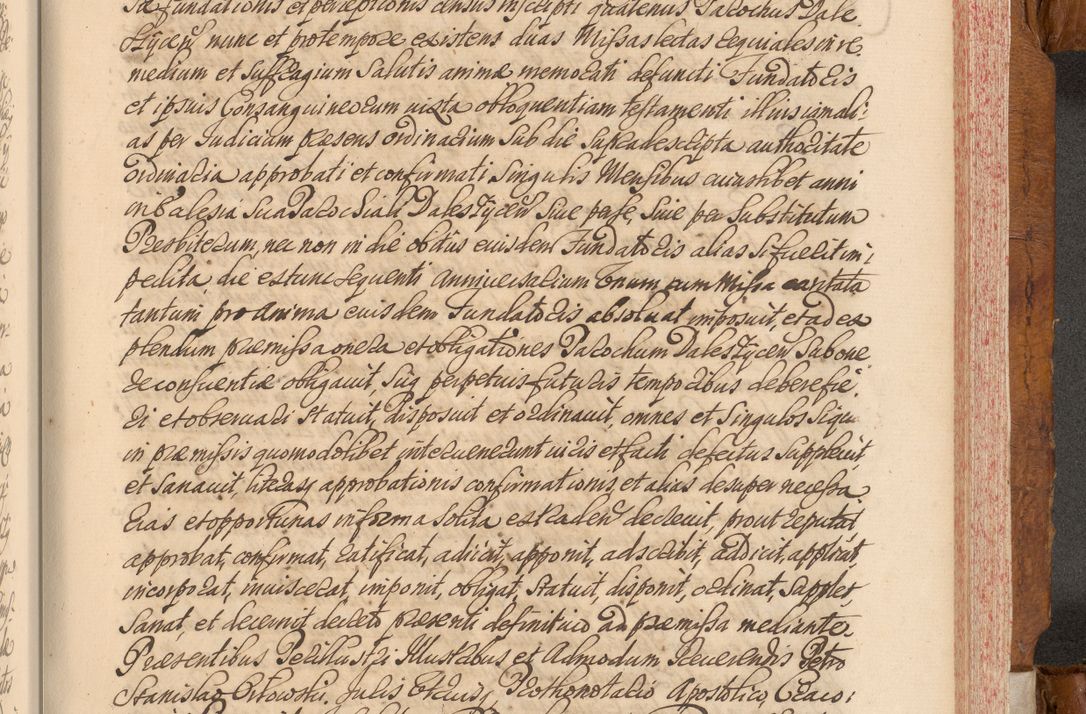 fundationis et perceptionis census inscripti quatenus Parochus Dale
szyceñ nunc et protempore existens duas Missas lectas requiales in re
medium et suffragium salutis animæ memorati defuncti Fundatoris
et ipsius Consanguineorum iuxta obloquentiam testamenti illius ianuali:
as per Iudicium præsens ordinarium sub die supradescripta authoritate
ordinaria approbati et confirmati singulis Mensibus cuiuslibet anni
in Ecclesia sua Parochiali Daleszyceñ siue per se, siue per substitutum
Præsbiterum, nec non in die obitus eiusdem Fundatoris alias si fuerit im:
pedita, die extunc sequenti anniversarium unum cum Missa cantata
tantum pro anima eiusdem Fundatoris absoluat imposuit, et ad ex
plendum præmissa onera et obligationes Parochum Daleszyceñ sub one
re conscientiæ obligauit, sicq perpetuis futuris temporibus debere fie
ri et obseruari statuit, disposuit et ordinauit, omnes et singulos siqui
in præmissis quomodolibet interuenerunt iuris et facti defectus suppleuit
et sanauit, literasq approbationis confirmationis et alias desuper necessa
rias et opportunas in forma solita extradeñ decreuit, prout reputat
approbat, confirmat, ratificat, adiicit, apponit, adscribit, addicit, applicat,
incorporat, inuiscerat, imponit, obligat, statuit, disponit, ordinat, supplet,
sanat, et decernit decreto præsenti definitiuo ad præmissa mediante
Præsentibus Perillustri Illustribus et Admodum Reuerendis Petro
Stanislao Orłowski Iuris Utriusq Prothonotario Apostolico, Craco: